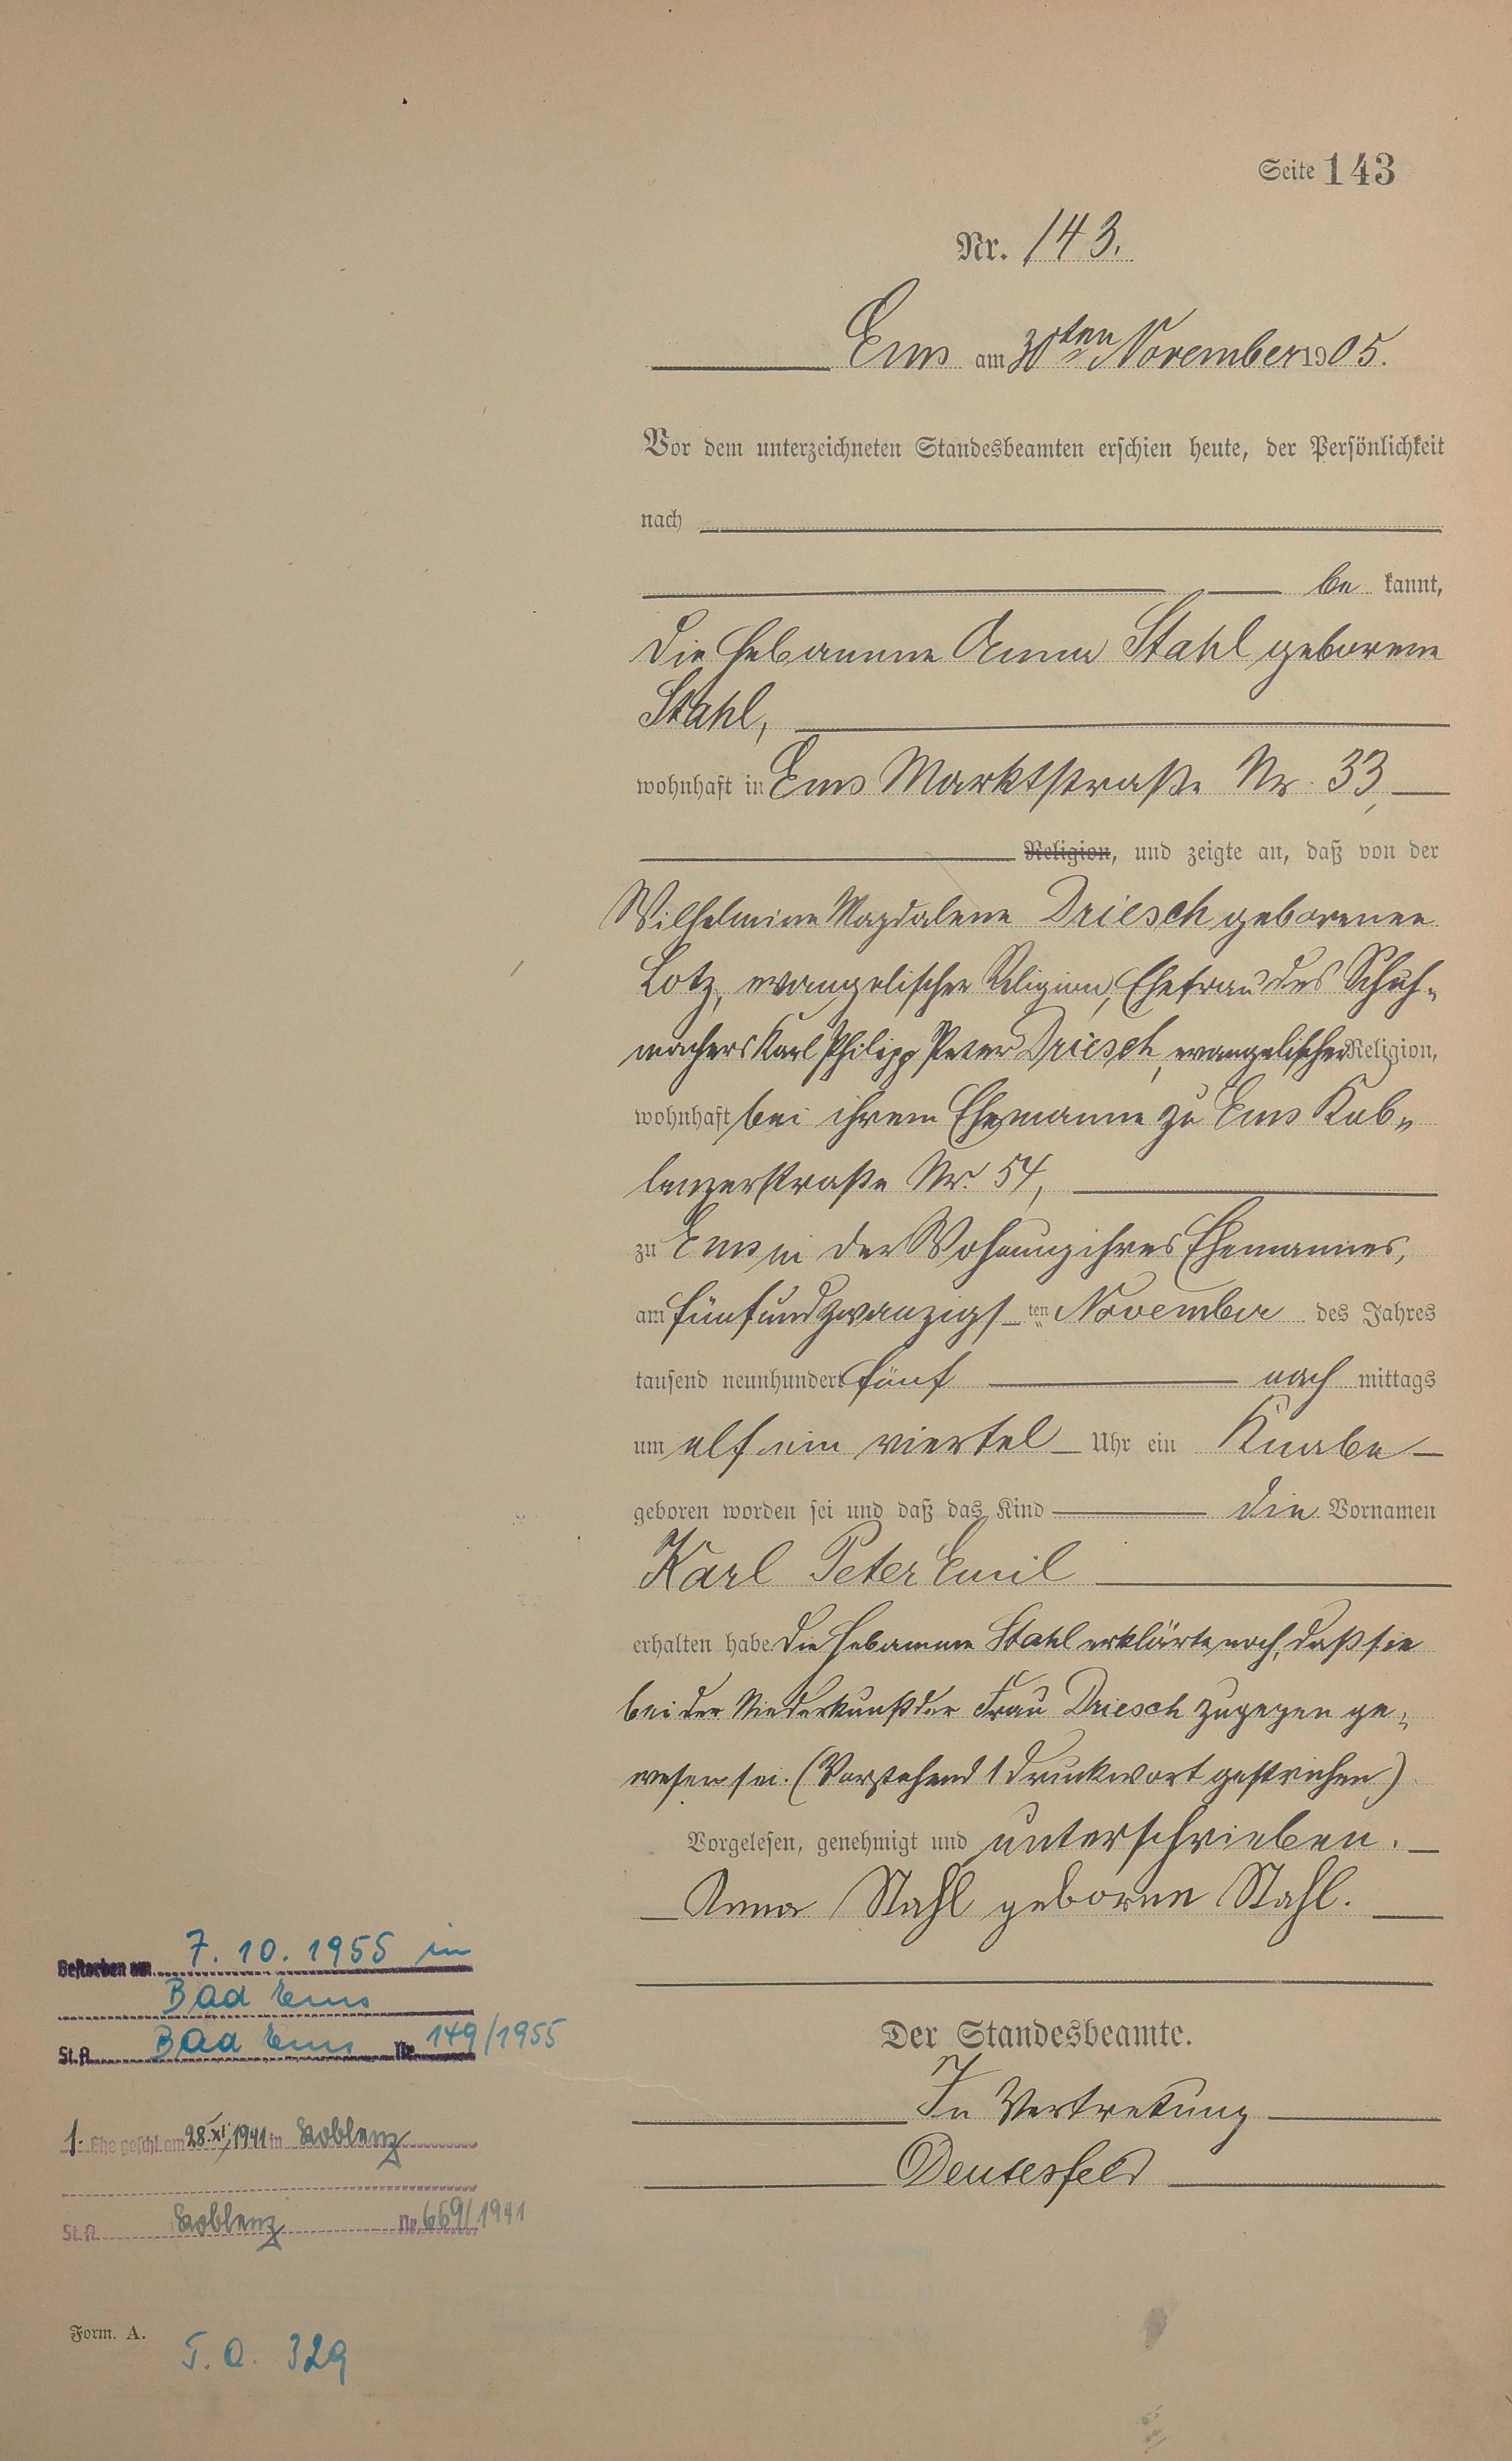 Seite 143
Nr. 143.
Ems am 30ten November 1905.
Vor dem unterzeichneten Standesbeamten erschien heute, der Persönlichkeit
nach
be kannt,
die Hebamme Anna Stahl geborene
Stahl,
wohnhaft in Ems Marktstraße Nr. 33,
Religion, und zeigte an, daß von der
Wilhelmine Magdalene Driesch geborenen
Lotz, evangelischer Religion, Ehefrau des Schuh-
machers Karl Philipp Peter Driesch, evangelischer Religion,
wohnhaft bei ihrem Ehemanne zu Ems Kob-
lenzerstraße Nr. 54,
zu Ems in der Wohnung ihres Ehemannes,
am fünfundzwanzigsten November des Jahres
tausend neunhundert fünf nach mittags
um elf ein viertel Uhr ein Knabe
geboren worden sei und daß das Kind die Vornamen
Karl Peter Emil
erhalten habe. Die Hebamme Stahl erklärte noch, daß sie
bei der Niederkunft der Frau Driesch zugegen ge-
wesen sei. (Vorstehend 1 Druckwort gestrichen)
Vorgelesen, genehmigt und unterschrieben.
Anna Stahl geborene Stahl.
Der Standesbeamte.
In Vertretung
Deutesfeld
Gestorben am 7.10.1955 in
Bad Ems
St.A. Bad Ems Nr. 149/1955
1. Ehe geschl. am 28.XI.1941 in Koblenz
St.A. Koblenz Nr. 669/1941
Form. A.
T.O. 329